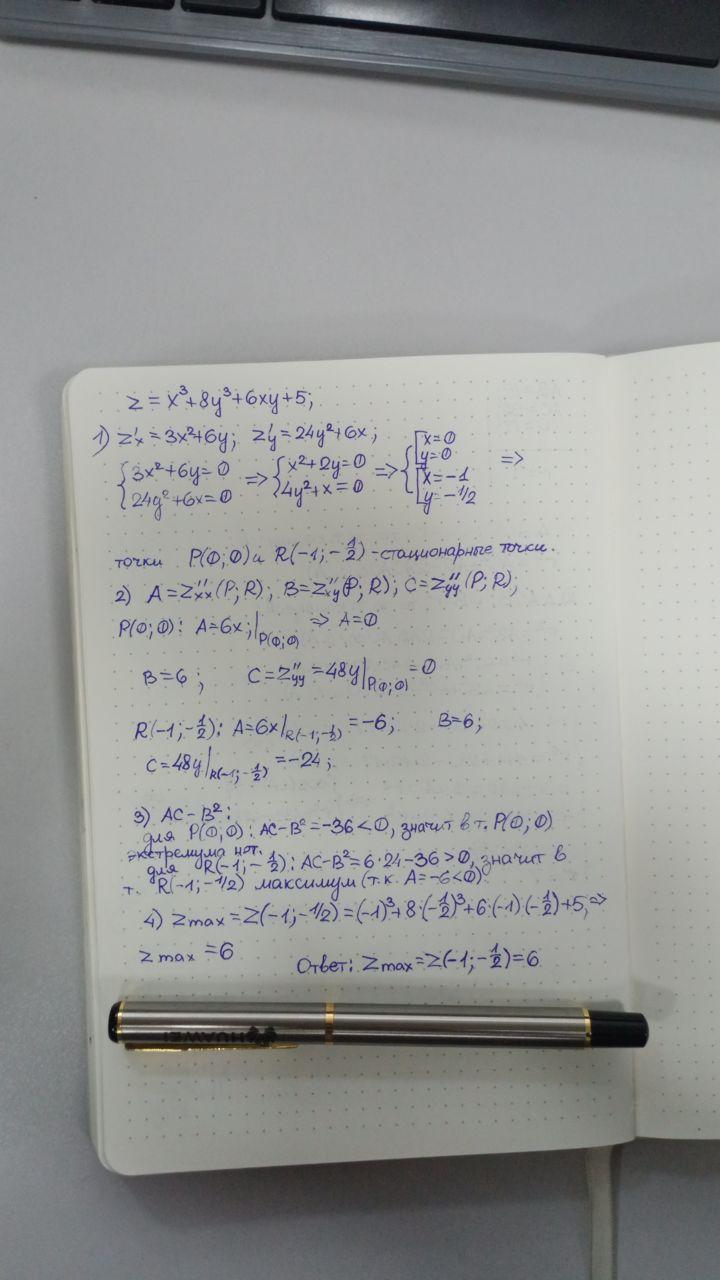 z = x³+8y³+6xy+5;
1) z'x = 3x²+6y; z'y = 24y²+6x;
{3x²+6y=0 24y²+6x=0 => {x²+2y=0 4y²+x=0 => {[x=0 y=0 [x=-1 y=-1/2 =>
точки P(0;0) и R(-1;-1/2) - стационарные точки.
2) A=z''xx(P;R); B=z''xy(P;R); C=z''yy(P;R);
P(0;0): A=6x;|P(0;0) => A=0
B=6; C=z''yy=48y|P(0;0)=0
R(-1;-1/2): A=6x|R(-1;-1/2)=-6; B=6;
C=48y|R(-1;-1/2)=-24;
3) AC-B²:
для P(0;0): AC-B²=-36<0, значит в т. P(0;0)
экстремума нет.
для R(-1;-1/2): AC-B²=6·24-36>0, значит в
т. R(-1;-1/2) максимум (т.к. A=-6<0)
4) Zmax=Z(-1;-1/2)=(-1)³+8·(-1/2)³+6·(-1)·(-1/2)+5; =>
Zmax=6
Ответ: Zmax=Z(-1;-1/2)=6
HUAWEI